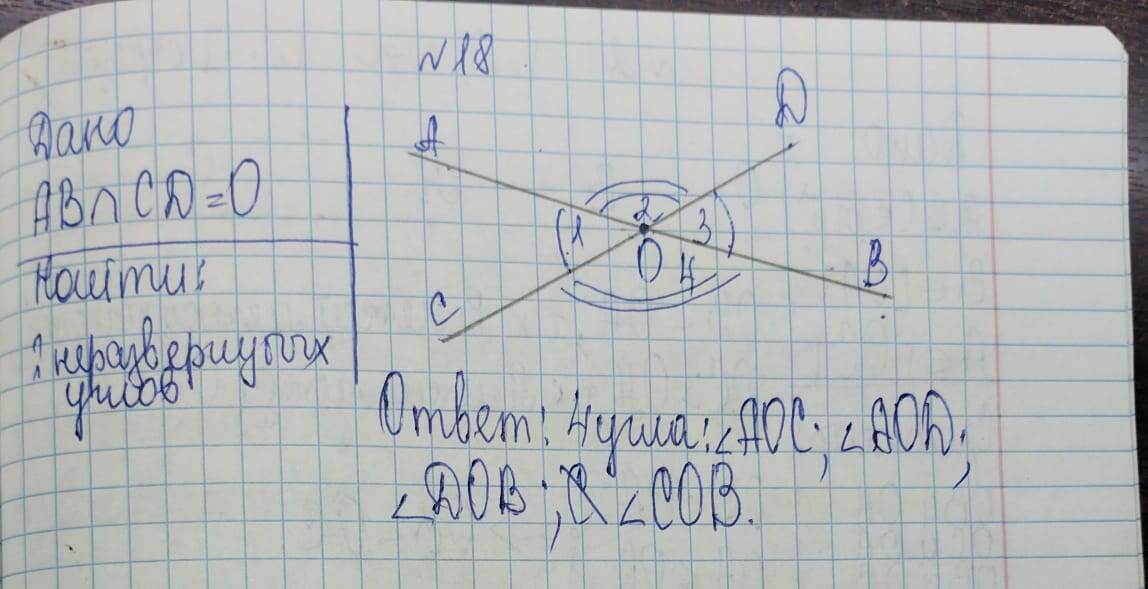 №18
Дано
AB∩CD=O
Найти:
? неразвернутых
углов
A
D
1
2
3
4
O
C
B
Ответ: 4 угла: ∠AOC; ∠AOD;
∠DOB; ∠COB.